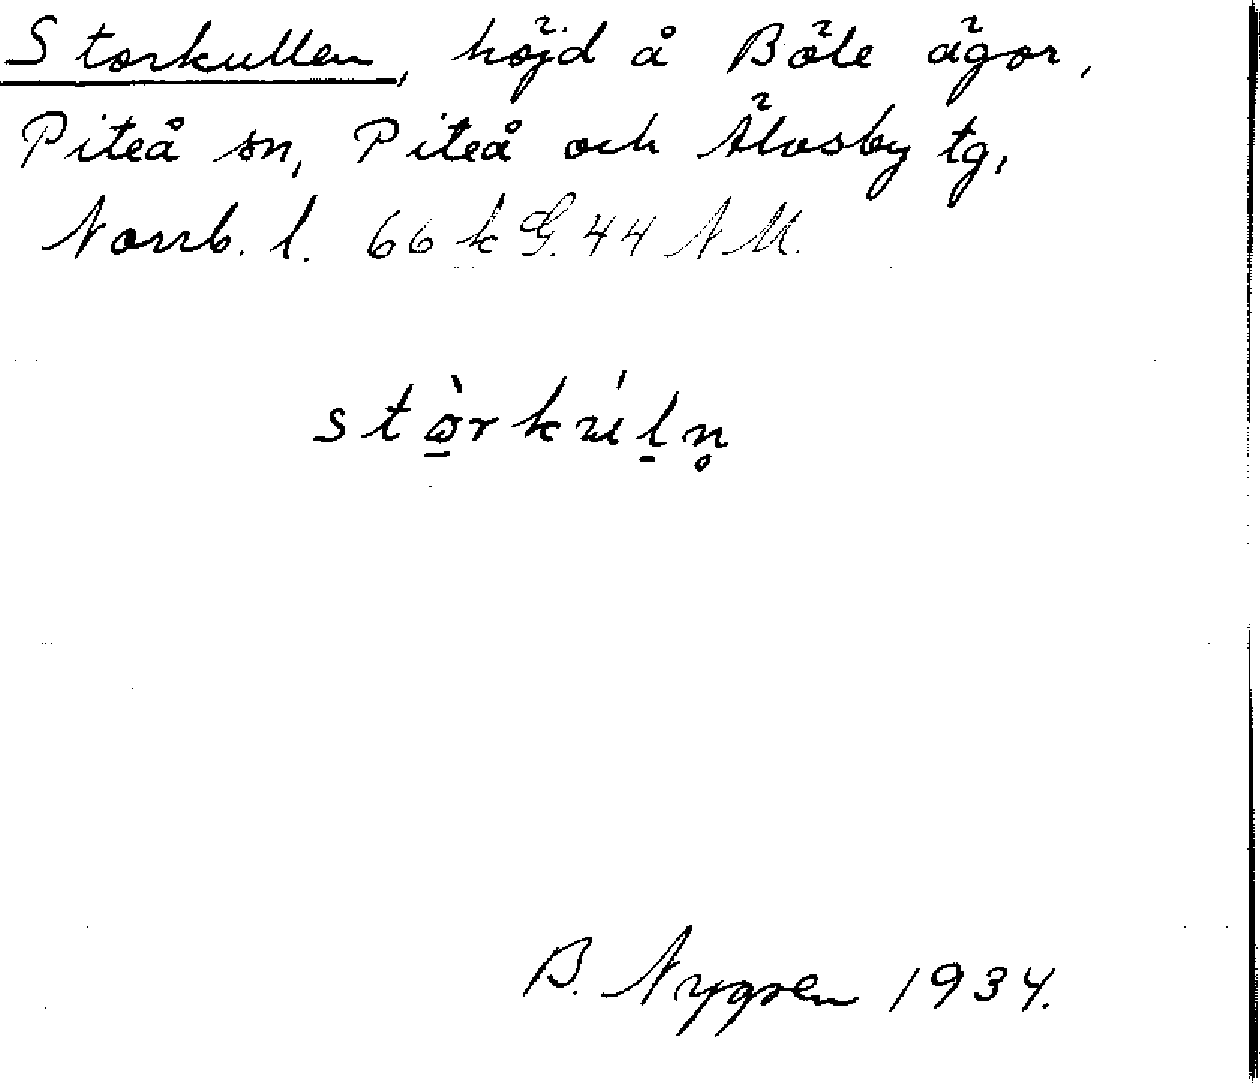 Storkullen, höjd å Böle ägor,
Piteå sn, Piteå och Älvsby tg,
Norrb. l. 66 k G. 44 N M.
B. Nygren 1934.